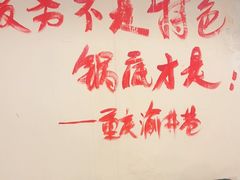 服务不是特色
锅底才是!
—重庆渝井巷